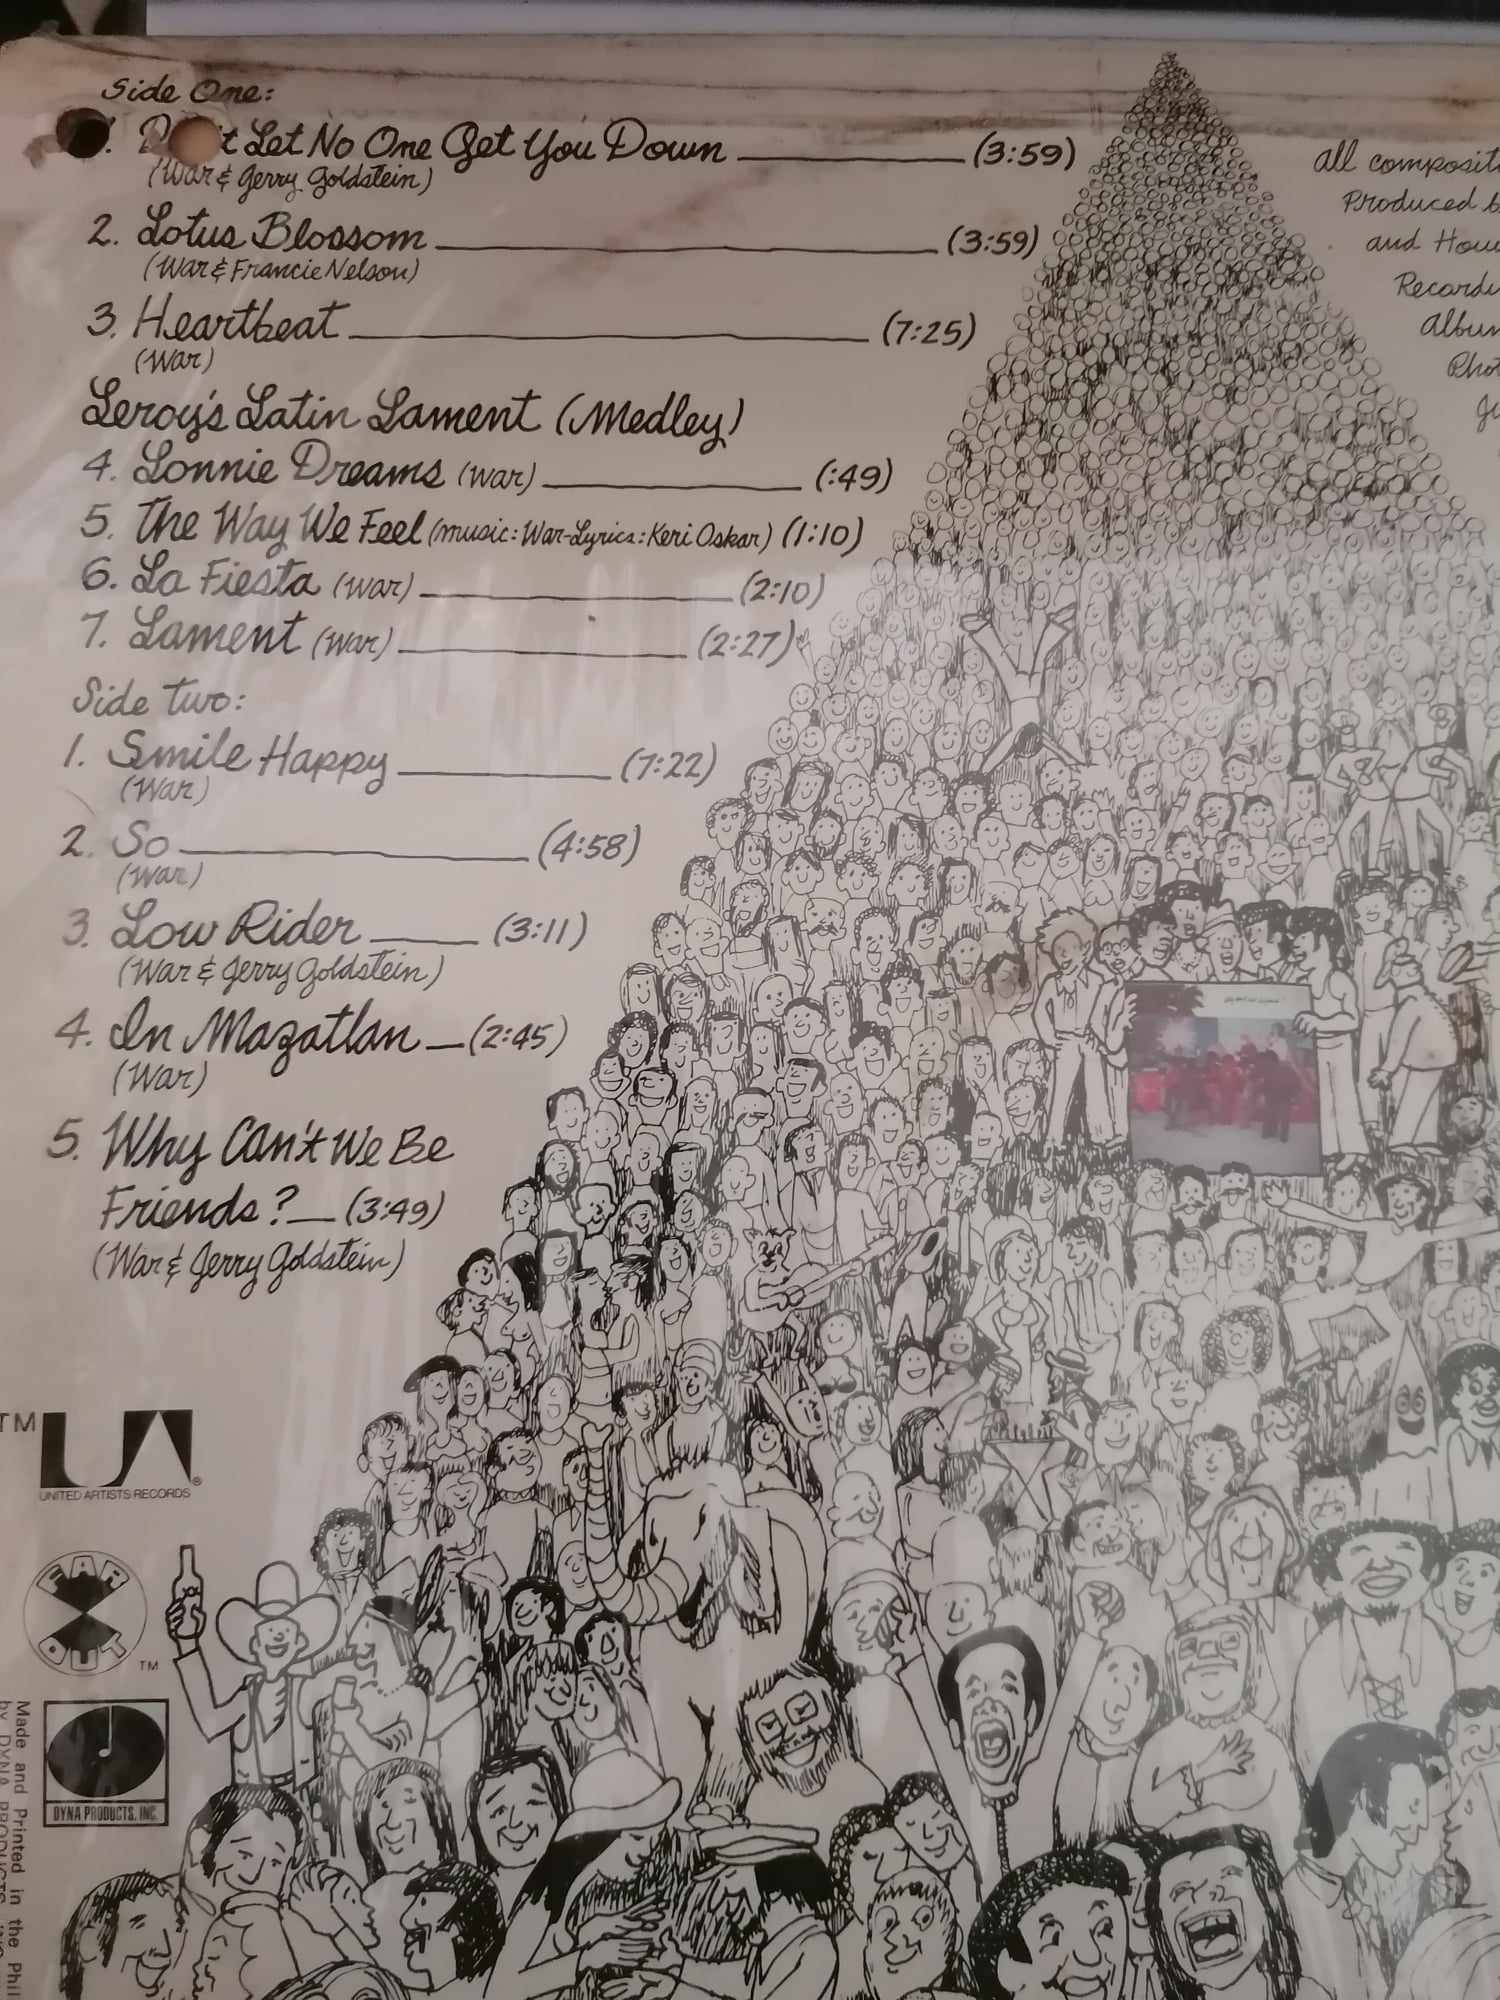 Side One:
Let No One Get You Down (3:59)
(War & Jerry Goldstein)
2. Lotus Blossom (3:59)
(War & Francie Nelson)
3. Heartbeat (7:25)
(War)
Leroy's Latin Lament (Medley)
4. Lonnie Dreams (War) (:49)
5. The Way We Feel (music: War-Lyrics: Keri Oskar) (1:10)
6. La Fiesta (War) (2:10)
7. Lament (War) (2:27)
Side Two:
1. Smile Happy (7:22)
(War)
2. So (4:58)
(War)
3. Low Rider (3:11)
(War & Jerry Goldstein)
4. In Mazatlan (2:45)
(War)
5. Why Can't We Be
Friends? (3:49)
(War & Jerry Goldstein)
All
Produced
and
TM
UA
®
UNITED ARTISTS RECORDS
FAR
OUT
TM
DYNA PRODUCTS, INC.
Made and Printed in the
by DYNA PRODUCTS